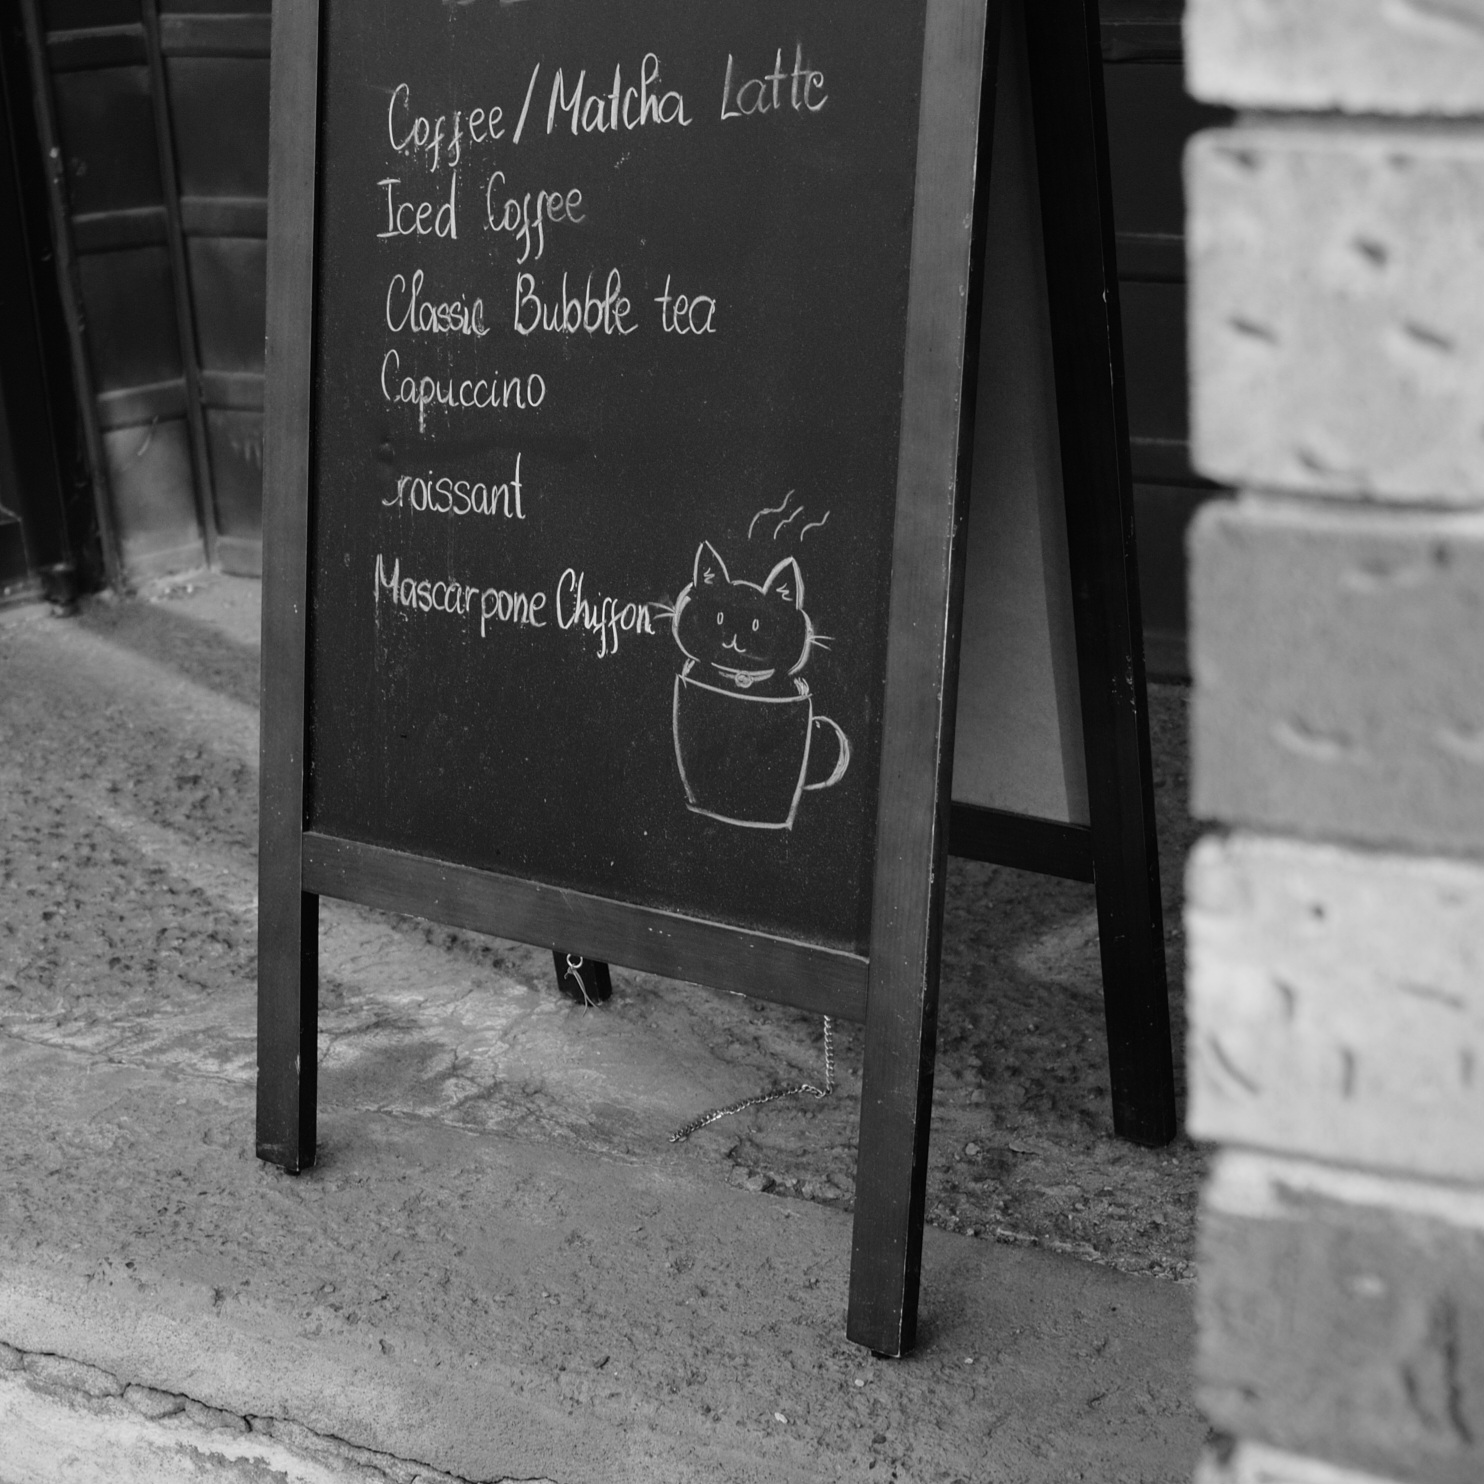 Coffee/Matcha Latte
Iced Coffee
Classic Bubble tea
Capuccino
roissant
Mascarpone Chiffon